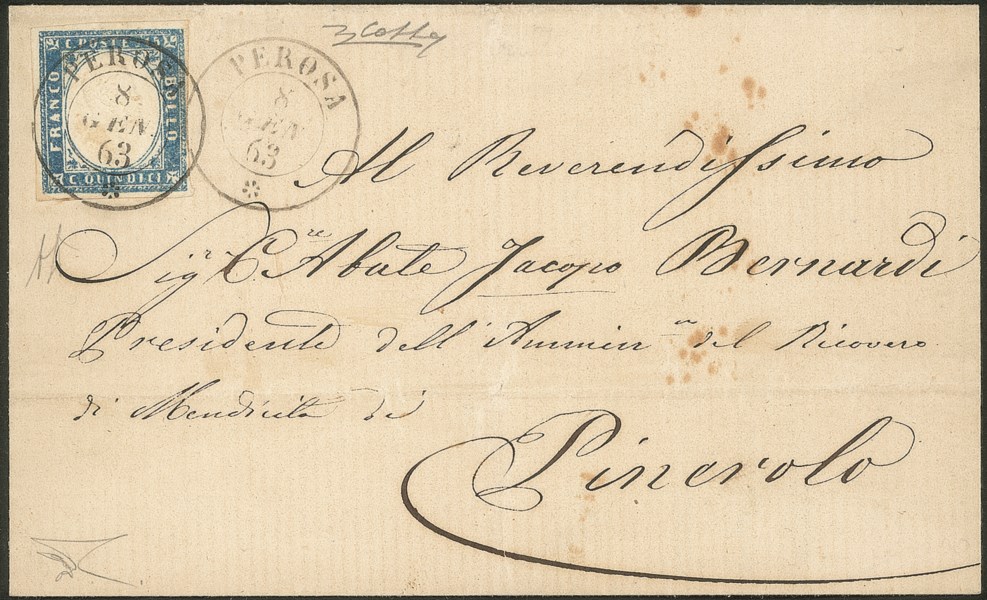 C. POSTE 15
FRANCO
BOLLO
C. QUINDICI
PEROSA
8
GEN
63
PEROSA
8
GEN
63
Al Reverendissimo
Sigr Cre Abate Jacopo Bernardi
Presidente dell'Ammin del Ricovero
di Mendicità di
Pinerolo